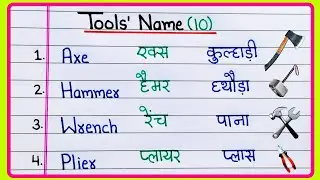 Tools' Name (10)
1. Axe एक्स कुल्हाड़ी
2. Hammer हैमर हथौड़ा
3. Wrench रेंच पाना
4. Plier प्लायर प्लास